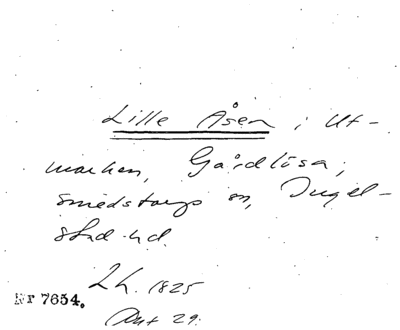 Lille Åsen i Ut-
marken, Gårdlösa,
Smedstorps sn, Ingel-
stad hd.
Lh. 1825
Akt 29.
Nr 7654.